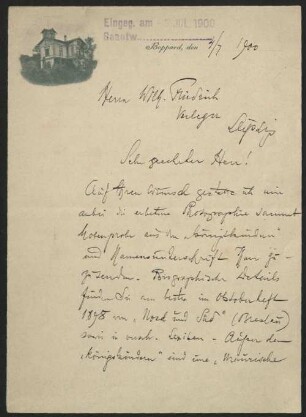 Eingeg. am JUL 1900
Beantw.
Boppard, den 3/7 1900
Herrn Wilh. Friedrich
Verleger
Leipzig
Sehr geehrter Herr!
Auf Ihren Wunsch gestatte ich mir
anbei die erbetene Photographie sammt
Notenprobe aus den „Königskindern"
und Namensunterschrift Ihnen zu-
zusenden. Biographische Details
finden Sie am besten im Octoberheft
1898 von „Nord und Süd" (Breslau)
sowie in Lexiken. Außer den
„Königskindern" sind eine „Maurische